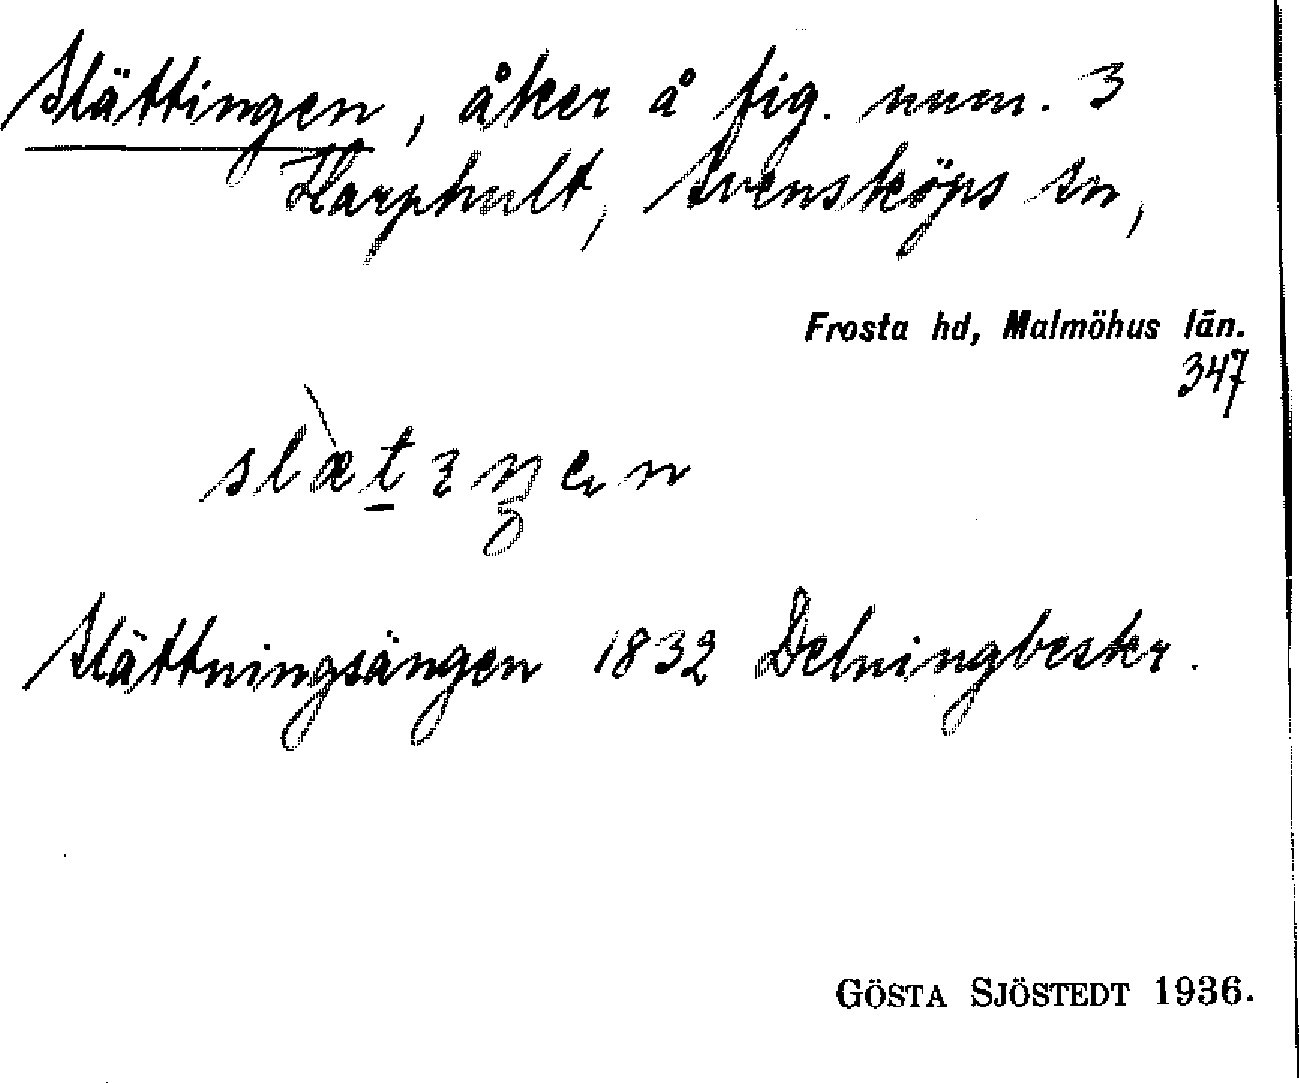 Slättingen, åker å fig. num. 3
Harphult, Svensköps sn,
Frosta hd, Malmöhus län.
347
Slättningsängen 1832 Delningbeskr.
GÖSTA SJÖSTEDT 1936.